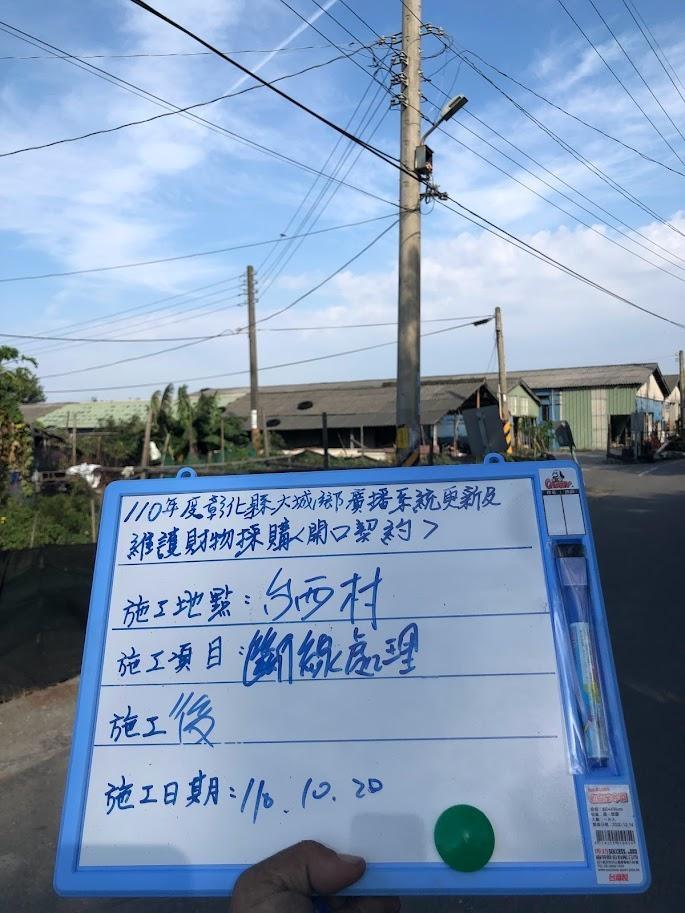 110年度彰化縣大城鄉廣播系統更新及
維護財物採購<開口契約>
施工地點:台西村
施工項目:斷線處理
施工後
施工日期:110.10.20
SUCCESS
台灣製